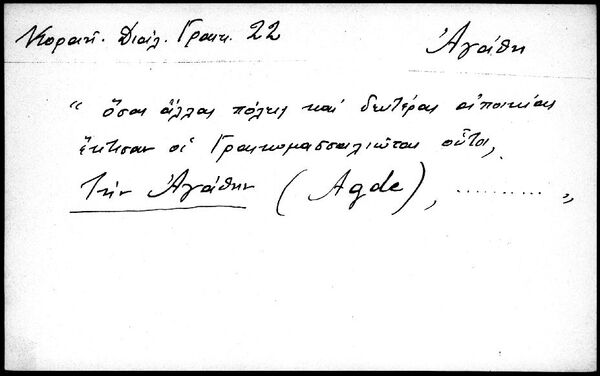 Κοραῆ. Διάλ. Γραικ. 22
Ἀγάθη
" ὅσας ἄλλας πόλεις καὶ δευτέρας ἀποικίας
ἔκτισαν οἱ Γραικομασσαλιῶται οὗτοι,
τὴν Ἀγάθην (Agde), .......... "